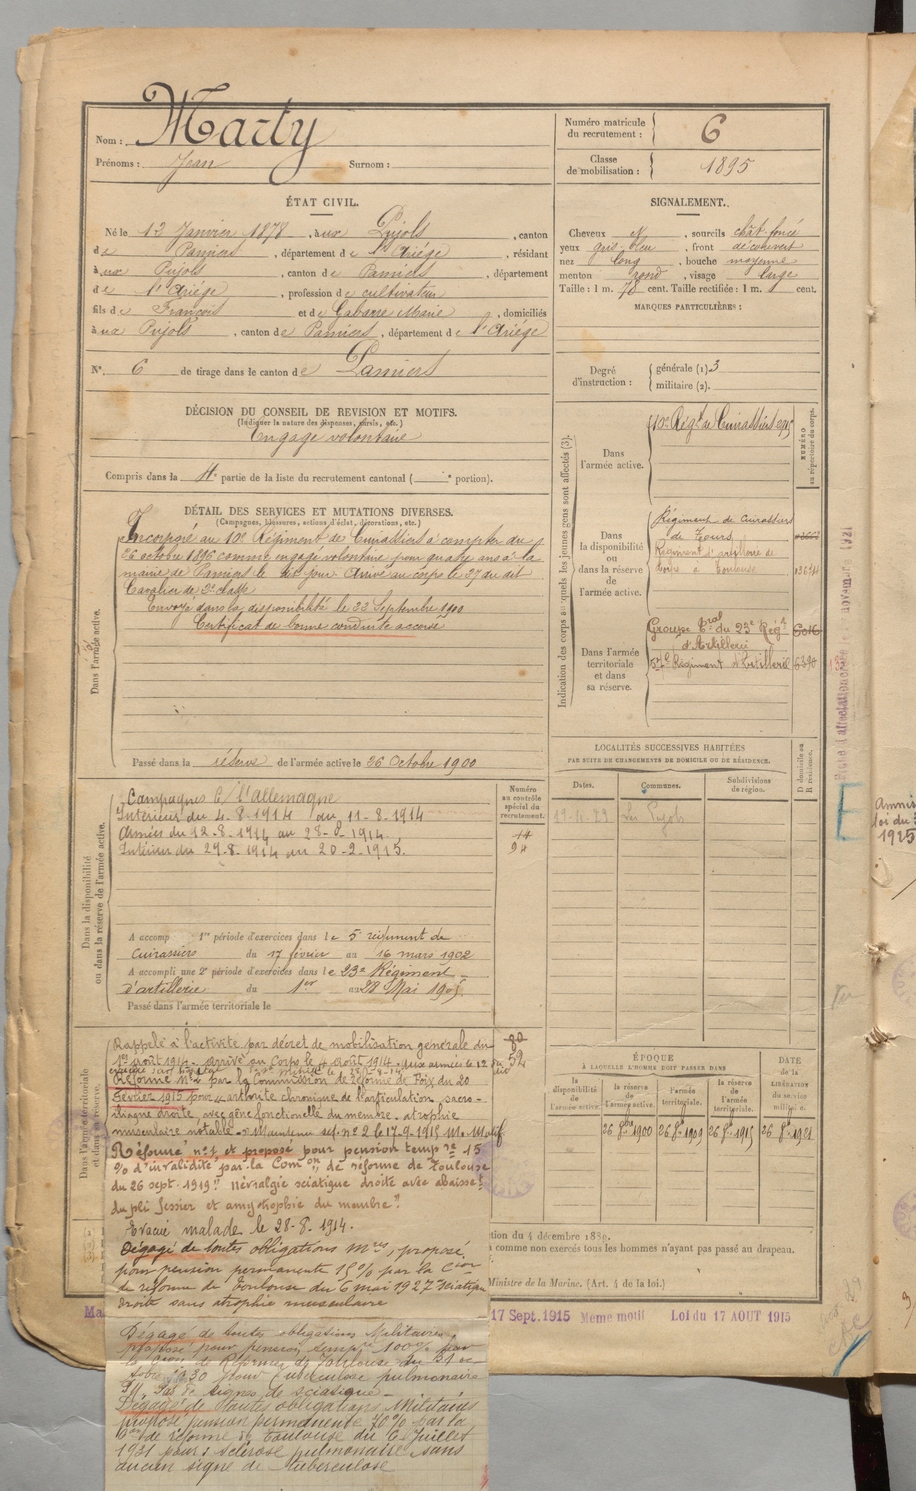 Nom : Marty
Prénoms : Jean Surnom :
Numéro matricule du recrutement : 6
Classe de mobilisation : 1895
ÉTAT CIVIL.
Né le 13 Janvier 1878, à aux Pujols, canton
de Pamiers, département de l'Ariége, résidant
à aux Pujols, canton de Pamiers, département
de l'Ariége, profession de cultivateur
fils de François et de Gabarre Marie, domiciliés
à aux Pujols, canton de Pamiers, département de l'Ariége
N°. 6 de tirage dans le canton de Pamiers
SIGNALEMENT.
Cheveux et, sourcils chât. foncé
yeux gris-bleu, front découvert
nez long, bouche moyenne
menton rond, visage large
Taille : 1 m. 78 cent. Taille rectifiée : 1 m. cent.
MARQUES PARTICULIÈRES :
Degré d'instruction : générale (1). 3
militaire (2).
DÉCISION DU CONSEIL DE REVISION ET MOTIFS.
(Indiquer la nature des dispenses, sursis, etc.)
Engagé volontaire
Compris dans la 4e partie de la liste du recrutement cantonal ( e portion).
DÉTAIL DES SERVICES ET MUTATIONS DIVERSES.
(Campagnes, blessures, actions d'éclat, décorations, etc.)
Dans l'armée active.
Incorporé au 10e Régiment de Cuirassiers à compter du
26 octobre 1896 comme engagé volontaire pour quatre ans à la
mairie de Pamiers le dit jour. Arrivé au corps le 27 du dit
Cavalier de 2e classe
Envoyé dans la disponibilité le 23 Septembre 1900
Certificat de bonne conduite accordé
Passé dans la réserve de l'armée active le 26 Octobre 1900
Indication des corps auxquels les jeunes gens sont affectés (3).
NUMÉRO au répertoire du corps.
Dans l'armée active.
10e Régt de Cuirassiers
Dans la disponibilité ou dans la réserve de l'armée active.
Régiment de Cuirassiers
de Tours
Régiment d'artillerie de
à Toulouse
Dans l'armée territoriale et dans sa réserve.
Groupe tal du 23e Régt
d'Artillerie
57e Régiment d'Artillerie
LOCALITÉS SUCCESSIVES HABITÉES
PAR SUITE DE CHANGEMENTS DE DOMICILE OU DE RÉSIDENCE.
Dates. Communes. Subdivisions de région. D domicile ou R résidence.
Les Pujols
Dans la disponibilité ou dans la réserve de l'armée active.
Numéro au contrôle spécial du recrutement.
Campagnes C/ l'allemagne
Intérieur du 4-8-1914 au 11-8-1914
Armées du 12-8-1914 au 28-8-1914
Intérieur du 29-8-1914 au 20-2-1915.
A accomp 1re période d'exercices dans le 5 régiment de
cuirassiers du 17 février au 16 mars 1902
A accompli une 2e période d'exercices dans le 23e Régiment
d'artillerie du 1er au 28 Mai 1905
Passé dans l'armée territoriale le
Dans l'armée territoriale et dans sa réserve.
Rappelé à l'activité par décret de mobilisation générale du
1er août 1914 - arrivé au Corps le 4 août 1914 - aux armées le 12
Réformé n° 2 par la Commission de réforme de Foix du 20
Février 1915 pour « arthrite chronique de l'articulation sacro-
iliaque droite avec gêne fonctionelle du membre - atrophie
musculaire notable. » Maintenu ref. n° 2 le 17-9-1915 M. Motif
Réformé n° 1 et proposé pour pension tempre 15
% d'invalidité par la Comon de réforme de Toulouse
du 26 sept. 1919 "névralgie sciatique droite avec abaisset
du pli fessier et amyotrophie du membre"
Evacué malade le 28-8-1914.
Dégagé de toutes obligations mres, proposé
pour pension permanente 15% par la Cion
de réforme de Toulouse du 6 mai 1927 sciatique
droite sans atrophie musculaire
Dégagé de toutes obligations Militaires,
proposé pour pension tempre 100% par
la Cion de Réforme de Toulouse du 31 oc-
tobre 1930 pour tuberculose pulmonaire
Pas de signes de sciatique -
Dégagé de toutes obligations Militaires
proposé pension permanente 70% par la
Con de réforme de Toulouse du 6 Juillet
1931 pour : sclérose pulmonaire sans
aucun signe de tuberculose
ÉPOQUE
À LAQUELLE L'HOMME DOIT PASSER DANS
la disponibilité de l'armée active. la réserve de l'armée active. l'armée territoriale. la réserve de l'armée territoriale.
DATE de la LIBÉRATION du service militaire.
26 8bre 1900 26 8bre 1909 26 8bre 1915 26 8bre 1921
tion du 4 décembre 1889.
comme non exercés tous les hommes n'ayant pas passé au drapeau.
Ministre de la Marine. (Art. 4 de la loi.)
17 Sept. 1915 Meme motif Loi du 17 AOUT 1915
Amnis
loi du 3
1925